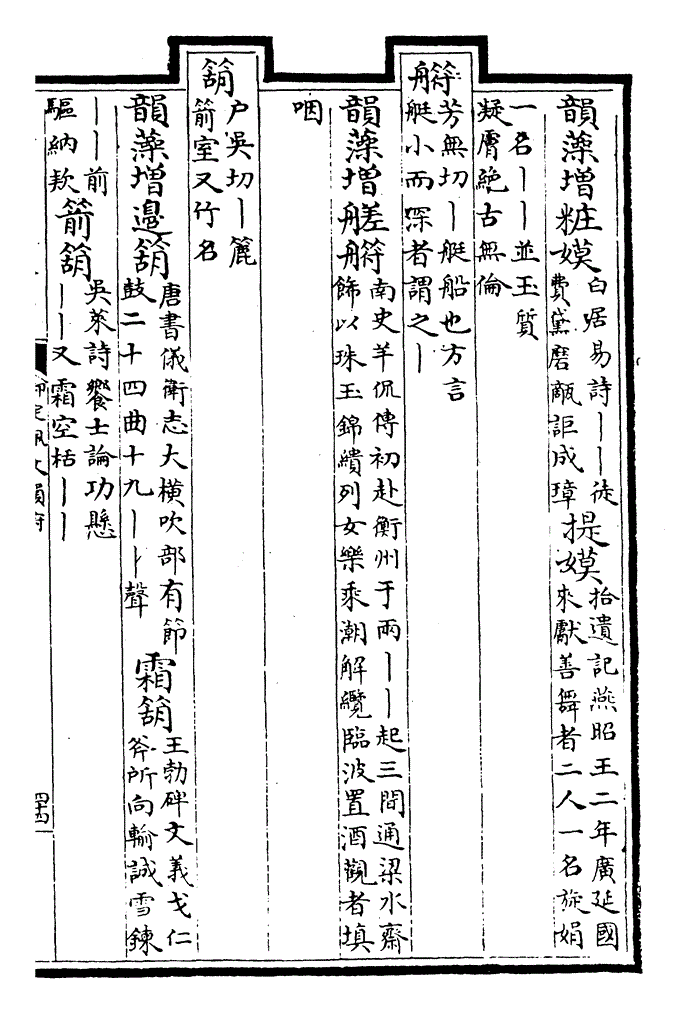 韻藻增粧嫫白居易詩丨丨徒費黛磨甋詎成璋提嫫拾遺記燕昭王二年廣延國來獻善舞者二人一名旋娟
一名丨丨並玉質凝膚絶古無倫
艀芳無切丨艇船也方言艇小而深者謂之丨
韻藻增艖艀南史羊侃傳初赴衡州于兩丨丨起三間通梁水齋飾以珠玉錦繢列女樂乘潮解纜臨波置酒觀者填
咽
箶户吳切丨簏箭室又竹名
韻藻增邊箶唐書儀衛志大橫吹部有節鼓二十四曲十九丨丨聲霜箶王勃碑文義戈仁斧所向輸誠雪鍊
丨丨前驅納款箭箶吳萊詩饗士論功懸丨丨又霜空枯丨丨
御定佩文韻府
四十四